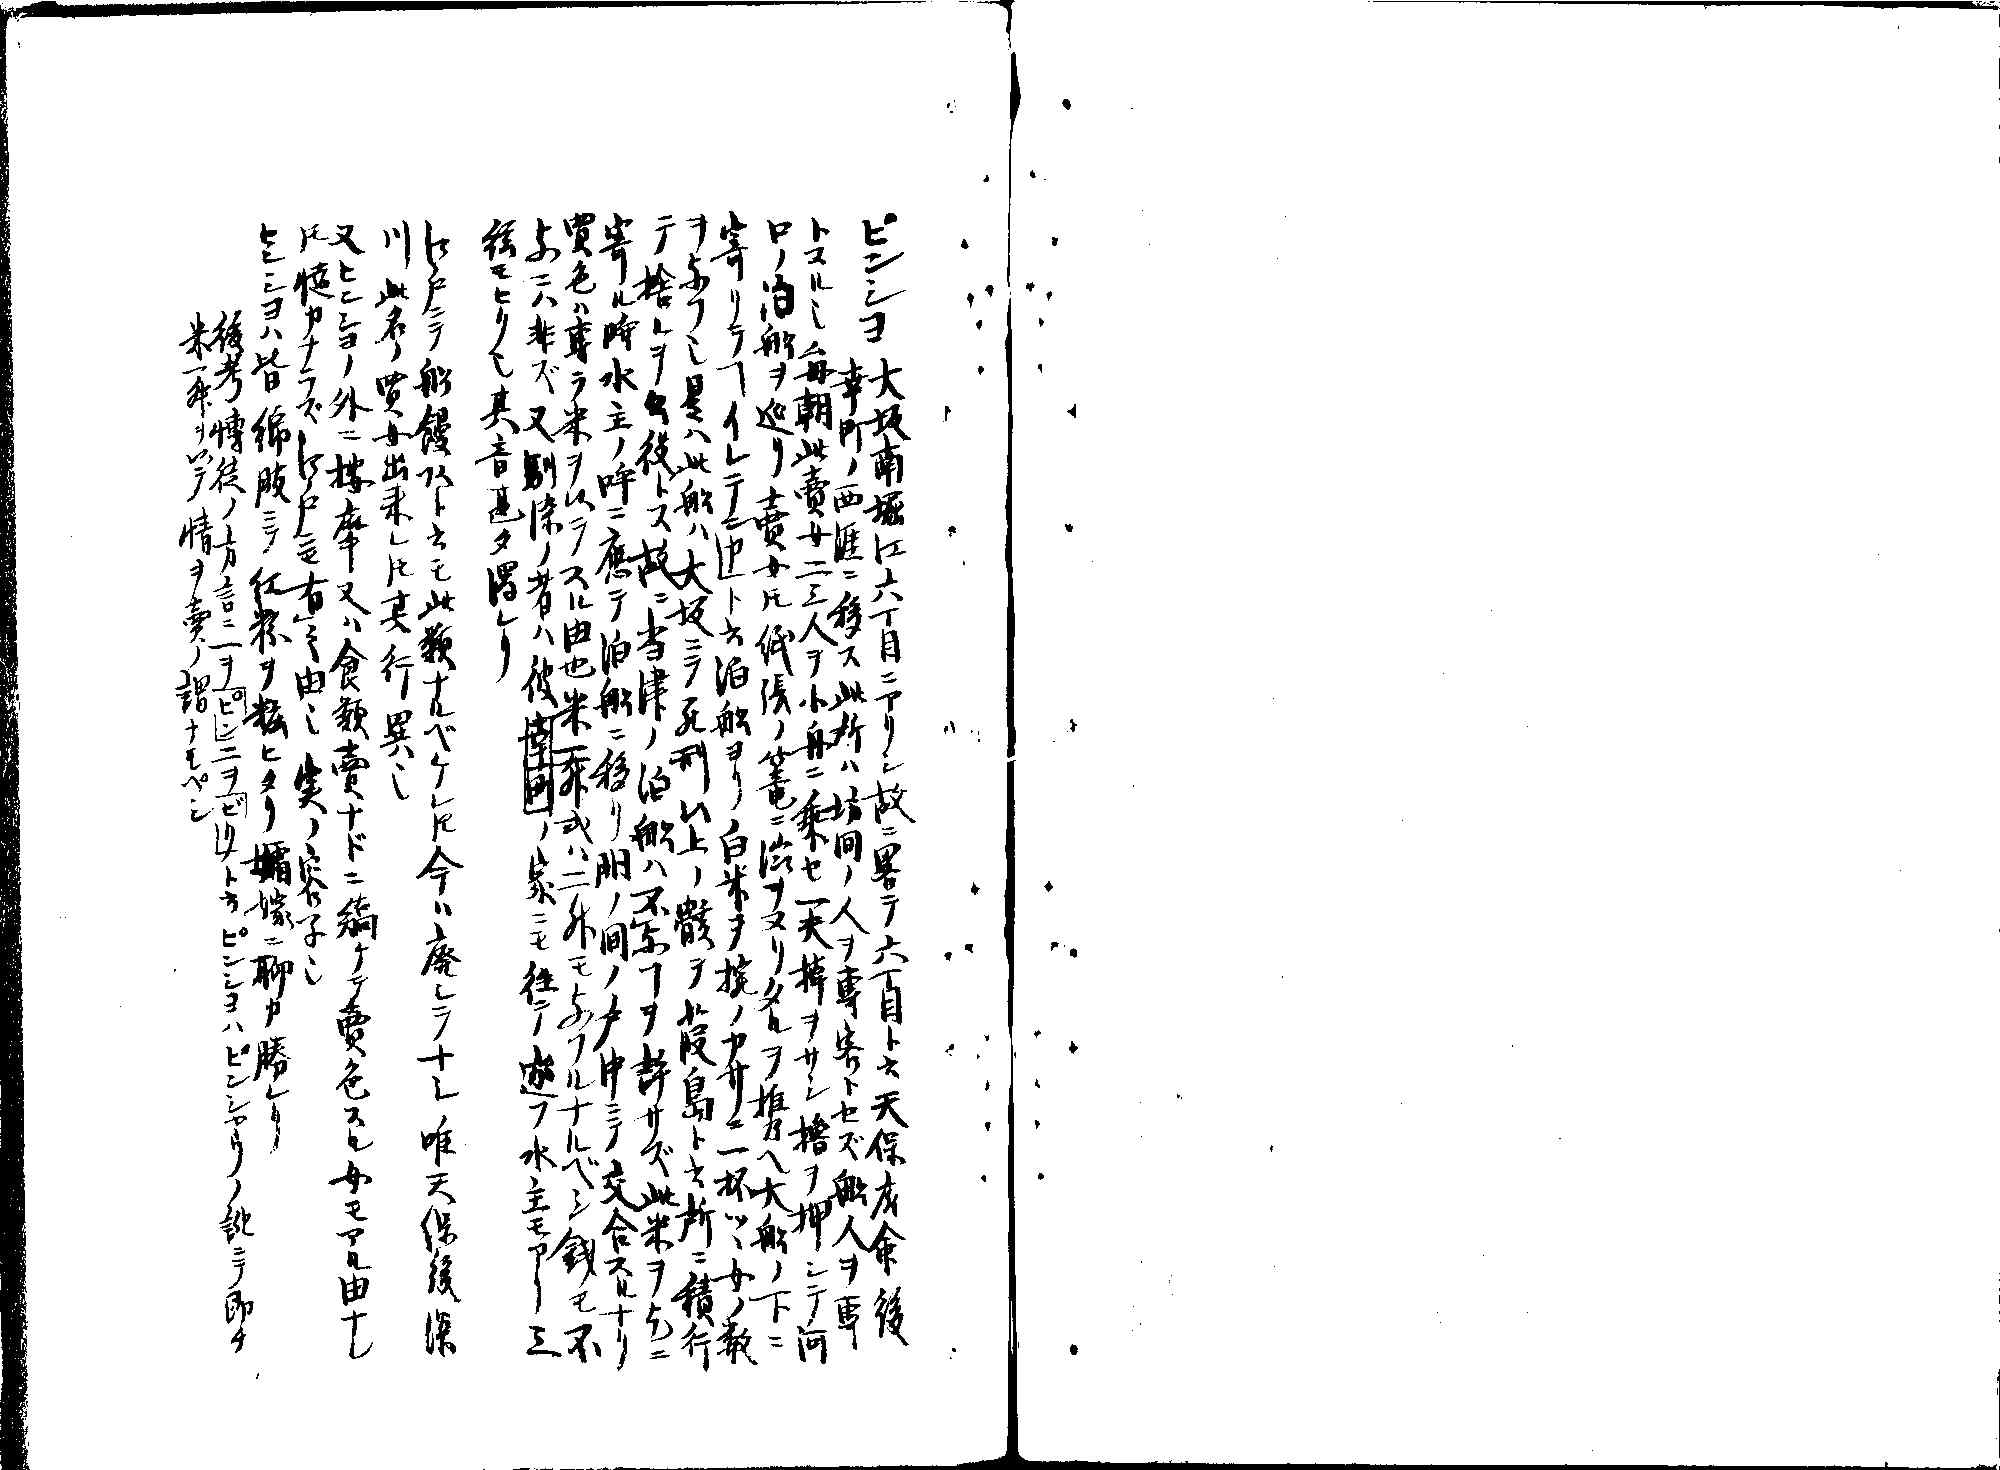 ピンシヨ 大坂南堀江六丁目ニアリシ故ニ畧テ六丁目ト云天保府命後
幸町ノ西涯ニ移ス此所ハ坊間ノ人ヲ専客トセズ船人ヲ専
トスル也毎朝此賣女二三人ヲ小舟ニ乗セ一夫棹ヲサシ櫓ヲ押シテ河
口ノ泊船ヲ巡リ賣女ハ紙張ノ篭ニ渋ヲヌリタルヲ携ヘ大船ノ下ニ
寄リテ イレテニ ト云泊船ヨリノ白米ヲ椀ノカサニ一杯ツヽ女ノ数
ヲ与フ也是ハ此船ハ大坂ニテ死刑以上ノ骸ヲ葭島ト云所ニ積行
テ捨ルヲ公役トス故ニ当津ノ泊船ハ不与ヿヲ許サズ此米ヲ乞ニ
寄ル時水主ノ呼ニ應テ泊船ニ移リ胴ノ間ノ戸中ニテ交合スルナリ
買色ハ専ラ米ヲ以テスル由也米一舛或ハ二舛モ与フルナルベシ銭モ不
与ニハ非ズ又馴染ノ者ハ彼幸町ノ家ニモ往テ遊フ水主モアリ三
絃モヒク也其音甚タ濁レリ
江戸ニテ船饅頭ト云モ此類ナルベケレ𪜈今ハ廃レテナシ唯天保後深
川此名ノ賣女出来レ𪜈其行異也
又ヒンシヨノ外ニ按摩又ハ食類賣ナドニ 賣色スル女モアル由ナレ
𪜈慥カナラズ江戸ニモ有之由也実ノ容子也
ヒンシヨハ皆綿服ニテ紅粉ヲ粧ヒタリ 嫁ニ聊カ勝レリ
後考博徒ノ方言ニ一ヲピンニヲビリト云ピンシヨハピンシヤリノ訛ニテ即チ
米一舛ヲ以テ情ヲ賣ノ謂ナルベシ